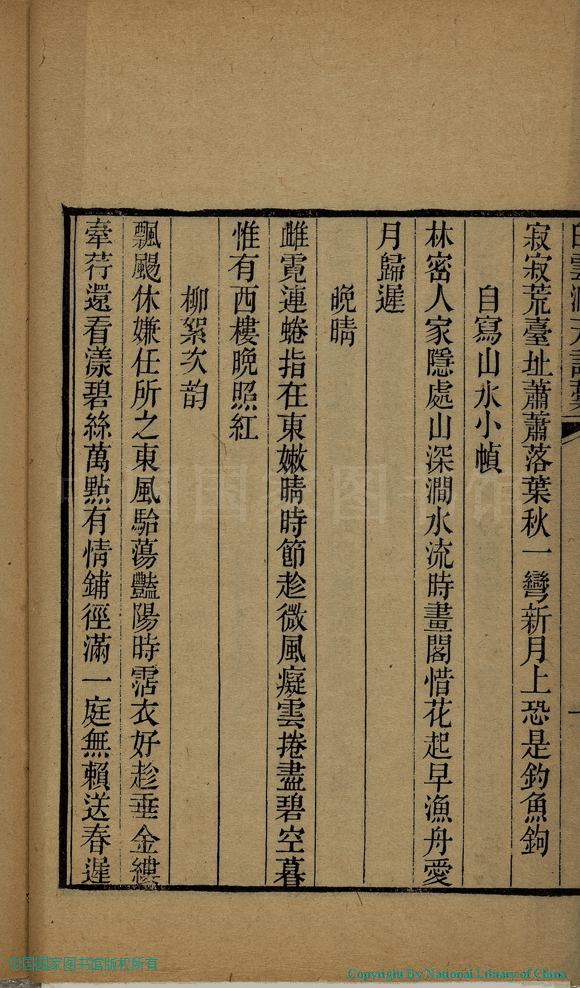 寂寂荒臺址蕭蕭落葉秋一彎新月上恐是釣魚鉤
自寫山水小幀
林密人家隱處山深澗水流時畫閣惜花起早漁舟愛
月歸遲
晚晴
雌霓連蜷指在東嫩晴時節趁微風癡雲捲盡碧空暮
惟有西樓晚照紅
柳絮次韵
飄颺休嫌任所之東風駘蕩豔陽時霑衣好趁垂金縷
牽荇還看漾碧絲萬點有情鋪徑滿一庭無賴送春遲
中国国家图书馆版权所有
Copyright By National Library of China